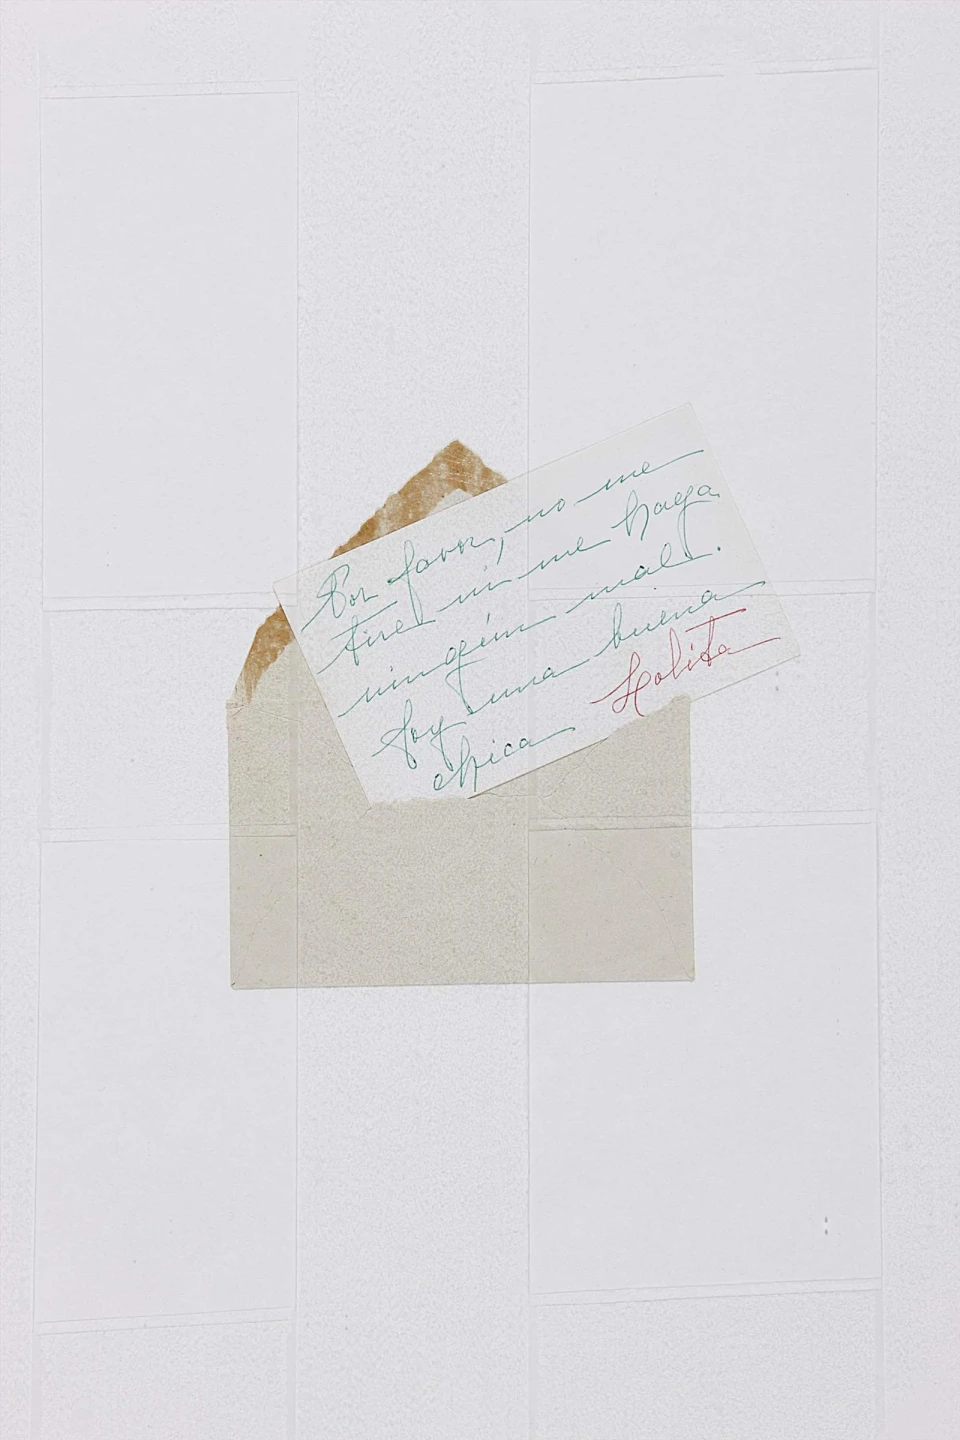 Por favor, no me
tire ni me haga
ningún mal.
Soy una buena
chica Lolita